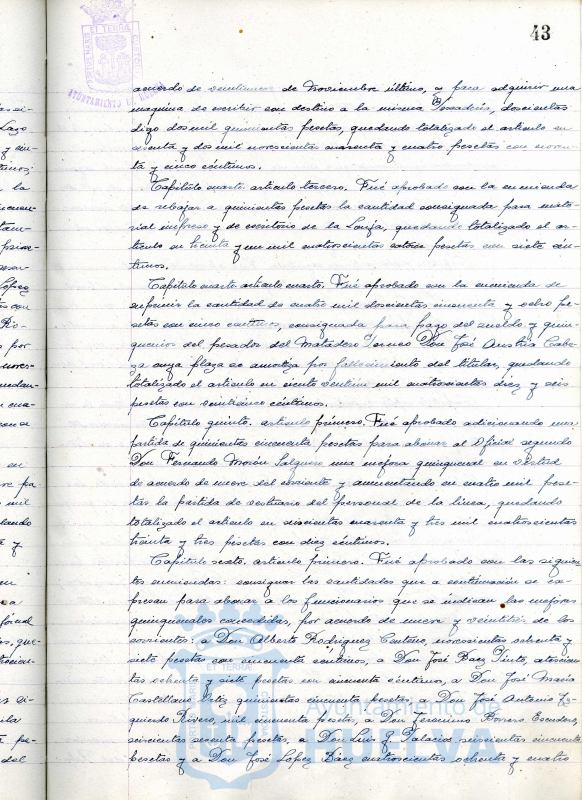 43
AYUNTAMIENTO DE HUELVA
acuerdo de veintinueve de Noviembre último, y para adquirir una
maquina de escribir con destino a la misma doscientas
digo dos mil quinientas pesetas, quedando totalizado el artículo en
y dos mil novecientas cuarenta y cuatro pesetas con noven-
ta y cinco céntimos.
Capítulo cuarto artículo tercero. Fué aprobado con la enmienda
de rebajar a quinientas pesetas la cantidad consignada para mate-
rial impreso y de escritorio de la Lonja, quedando totalizado el ar-
tículo en treinta y un mil cuatrocientas catorce pesetas con siete cén-
timos.
Capítulo cuarto artículo cuarto. Fué aprobado con la enmienda de
suprimir la cantidad de cuatro mil doscientas cincuenta y ocho pe-
setas con cinco centimos, consignada para pago del sueldo y quin-
quenios del pesador del Matadero Don José Austria Cabe-
za cuya plaza se amortiza por fallecimiento del titular, quedando
totalizado el artículo en ciento veintiun mil cuatrocientas diez y seis
pesetas con veinticinco céntimos.
Capítulo quinto. artículo primero. Fué aprobado adicionando una
partida de quinientas cincuenta pesetas para abonar al Oficial segundo
Don Fernando Morón Salguero una mejora quinquenal en virtud
de acuerdo de nueve del corriente y aumentando en cuatro mil pese-
tas la partida de vestuario del personal de la línea, quedando
totalizado el artículo en seiscientas cuarenta y tres mil cuatrocientas
treinta y tres pesetas con diez céntimos.
Capítulo sexto. artículo primero. Fué aprobado con las siguien-
tes enmiendas: consignar las cantidades que a continuación se ex-
presan para abonar a los funcionarios que se indican las mejoras
quinquenales concedidas, por acuerdo de nueve y veintitrés de los
corrientes: a Don Alberto Rodriguez Centeno, novecientas ochenta y
siete pesetas con cincuenta céntimos, a Don José Baez Pinto, atrocien-
tas ochenta y siete pesetas con cincuenta céntimos, a Don José María
Castellano quinientas cincuenta pesetas, a Don José Antonio Iz-
quierdo Rivero, mil cincuenta pesetas, a Don Jeronimo Borrero
seiscientas sesenta pesetas, a Don Luis G. Palacios seiscientas cincuenta
pesetas y a Don José Lopez Báez cuatrocientas ochenta y cuatro
Ayuntamiento de
HUELVA